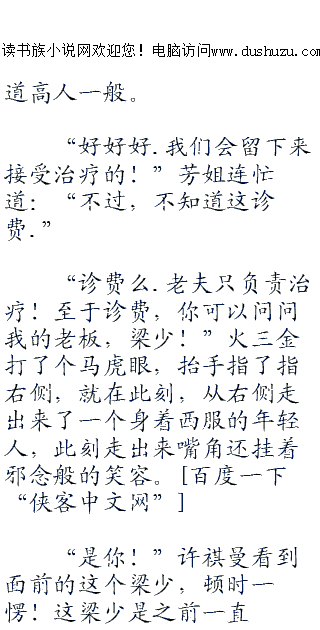 读书族小说网欢迎您！电脑访问www.dushuzu.com
道高人一般。
“好好好.我们会留下来
接受治疗的！”芳姐连忙
道：“不过，不知道这诊
费.”
“诊费么.老夫只负责治
疗！至于诊费，你可以问问
我的老板，梁少！”火三金
打了个马虎眼，抬手指了指
右侧，就在此刻，从右侧走
出来了一个身着西服的年轻
人，此刻走出来嘴角还挂着
邪念般的笑容。[百度一下
“侠客中文网”]
“是你！”许祺曼看到
面前的这个梁少，顿时一
愣！这梁少是之前一直